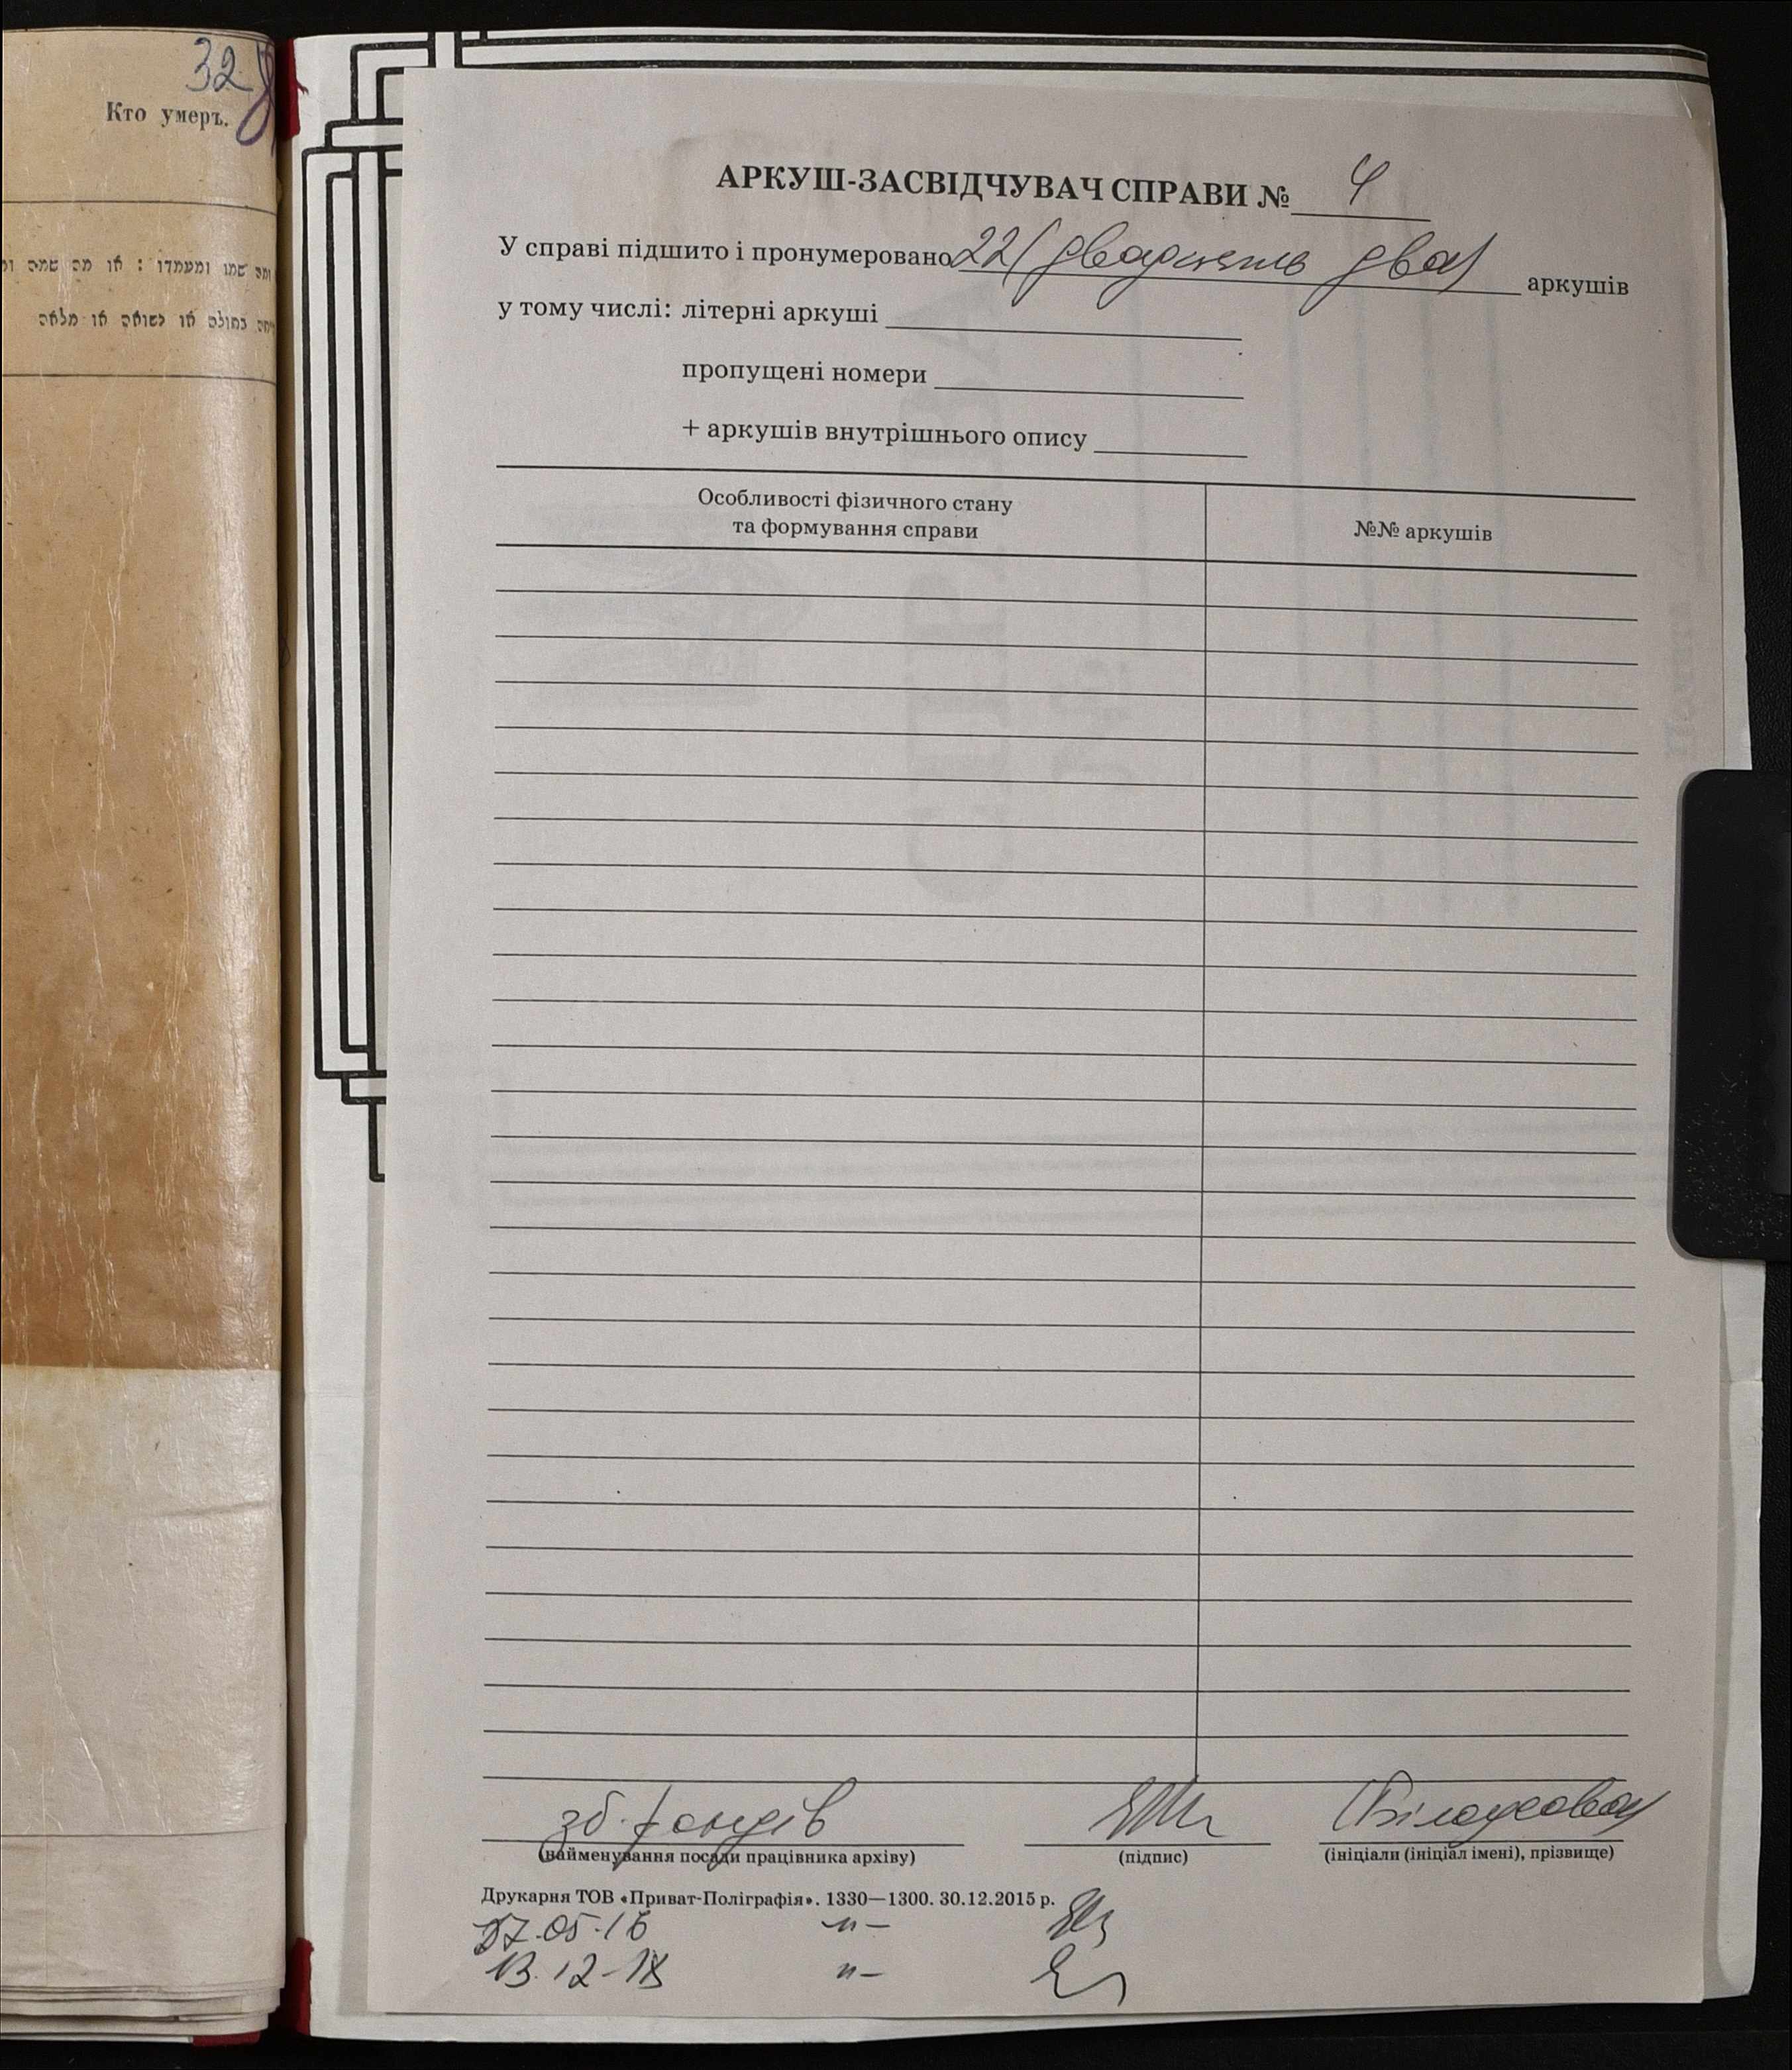 32
Кто умеръ.
АРКУШ-ЗАСВІДЧУВАЧ СПРАВИ № 4
У справі підшито і пронумеровано 22 (двадцять два) аркушів
у тому числі: літерні аркуші
пропущені номери
+ аркушів внутрішнього опису
Особливості фізичного стану
та формування справи
№№ аркушів
зб. фондів
(найменування посади працівника архіву)
(підпис)
(ініціали (ініціал імені), прізвище)
Друкарня ТОВ «Приват-Поліграфія». 1330—1300. 30.12.2015 р.
17.05.16 -"-
13.12-18 "-